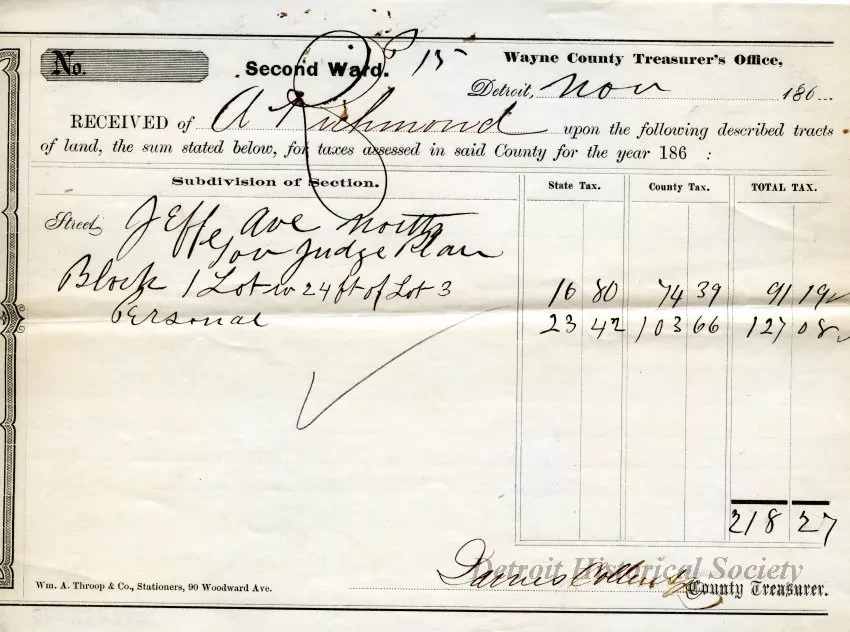 No.
Second Ward. 15
Wayne County Treasurer's Office,
Detroit, Nov 186
RECEIVED of A Richmond upon the following described tracts
of land, the sum stated below, for taxes assessed in said County for the year 186 :
Subdivision of Section. State Tax. County Tax. TOTAL TAX.
Street Jeffe Ave North
Gov Judge Plan
Block 1 Lot w 24 ft of Lot 3 16 80 74 39 91 19
Personal 23 42 103 66 127 08
218 27
James Collins
County Treasurer.
Wm. A. Throop & Co., Stationers, 90 Woodward Ave.
Detroit Historical Society